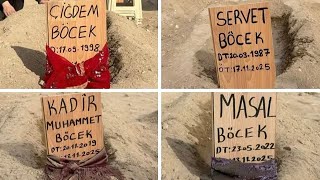 ÇİĞDEM
BÖCEK
D:17.09.1998
SERVET
BÖCEK
DT:20.03.1987
ÖT:17.11.2025
KADİR
MUHAMMET
BÖCEK
DT:20.12.2019
13.11.2025
MASAL
BÖCEK
DT:23.05.2022
2025